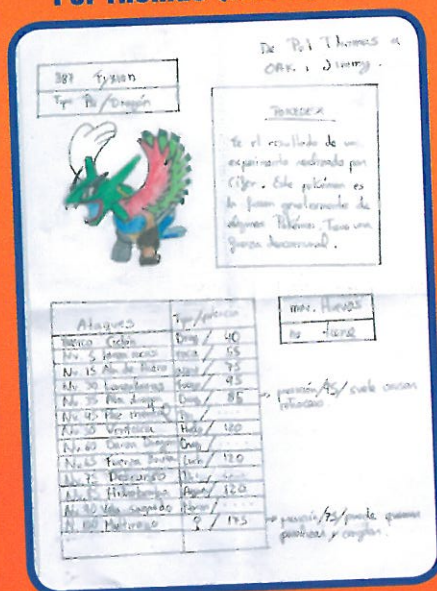 De Pol Thomas a
OAK. i Jimmy.
387 Fysion
Tipo Psi/Dragón
POKEDEX
Es el resultado de un
experimento realizado por
Cifer. Este pokémon es
la fusion de
algunos Pokémon. Tiene una
fuerza descomunal.
Ataques Tipo/potencia
Ciclón Drag/ 40
Nv. 5 roca/ 55
Nv. 15 Ala de 75
Nv. 30 Lanzallamas fuego/ 95
Nv. 35 Ala dragon Drag/ 85
Nv. 45 Paz mental Psi/ ....
Nv. 50 Ventisca Hielo/ 120
Nv. 60 Danza Dragon Drag/ ....
Nv. 65 Fuerza Bruta Luch/ 120
Nv. 75 Descanso ....
Nv. 85 Hidrobomba Agua/ 120
Nv. 90 Velo sagrado Norm/ ....
N. 100 Multirayo ?/ 175
mov. Huevos
no tiene
precisión/95/ suele causar
retroceso.
precisión/75/puede quemar
paralizar y congelar.